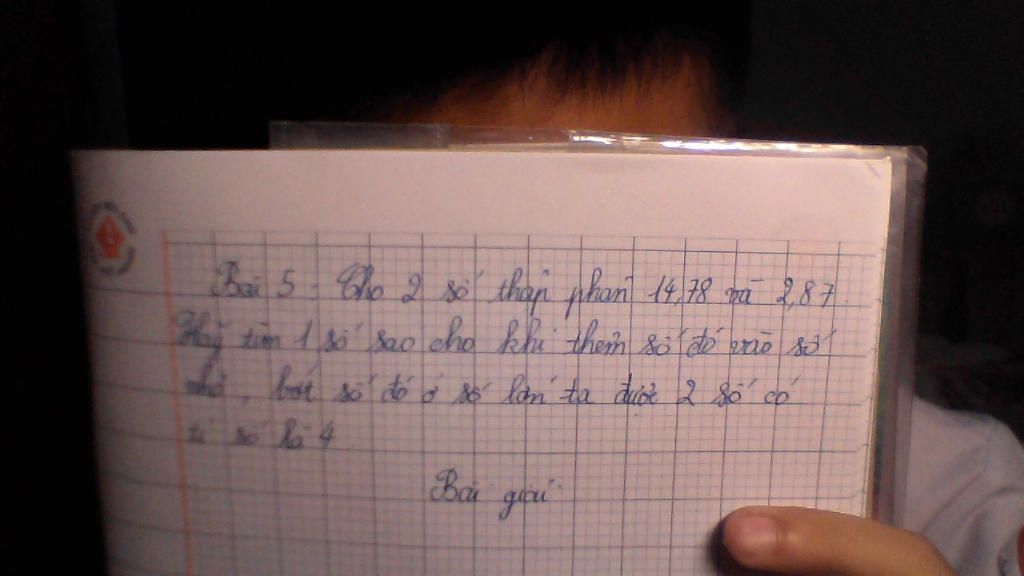 Bài 5 - Cho 2 số thập phân 14,78 và 2,87.
Hãy tìm 1 số sao cho khi thêm số đó vào số
nhỏ, bớt số đó ở số lớn ta được 2 số có
tỉ số là 4.
Bài giải